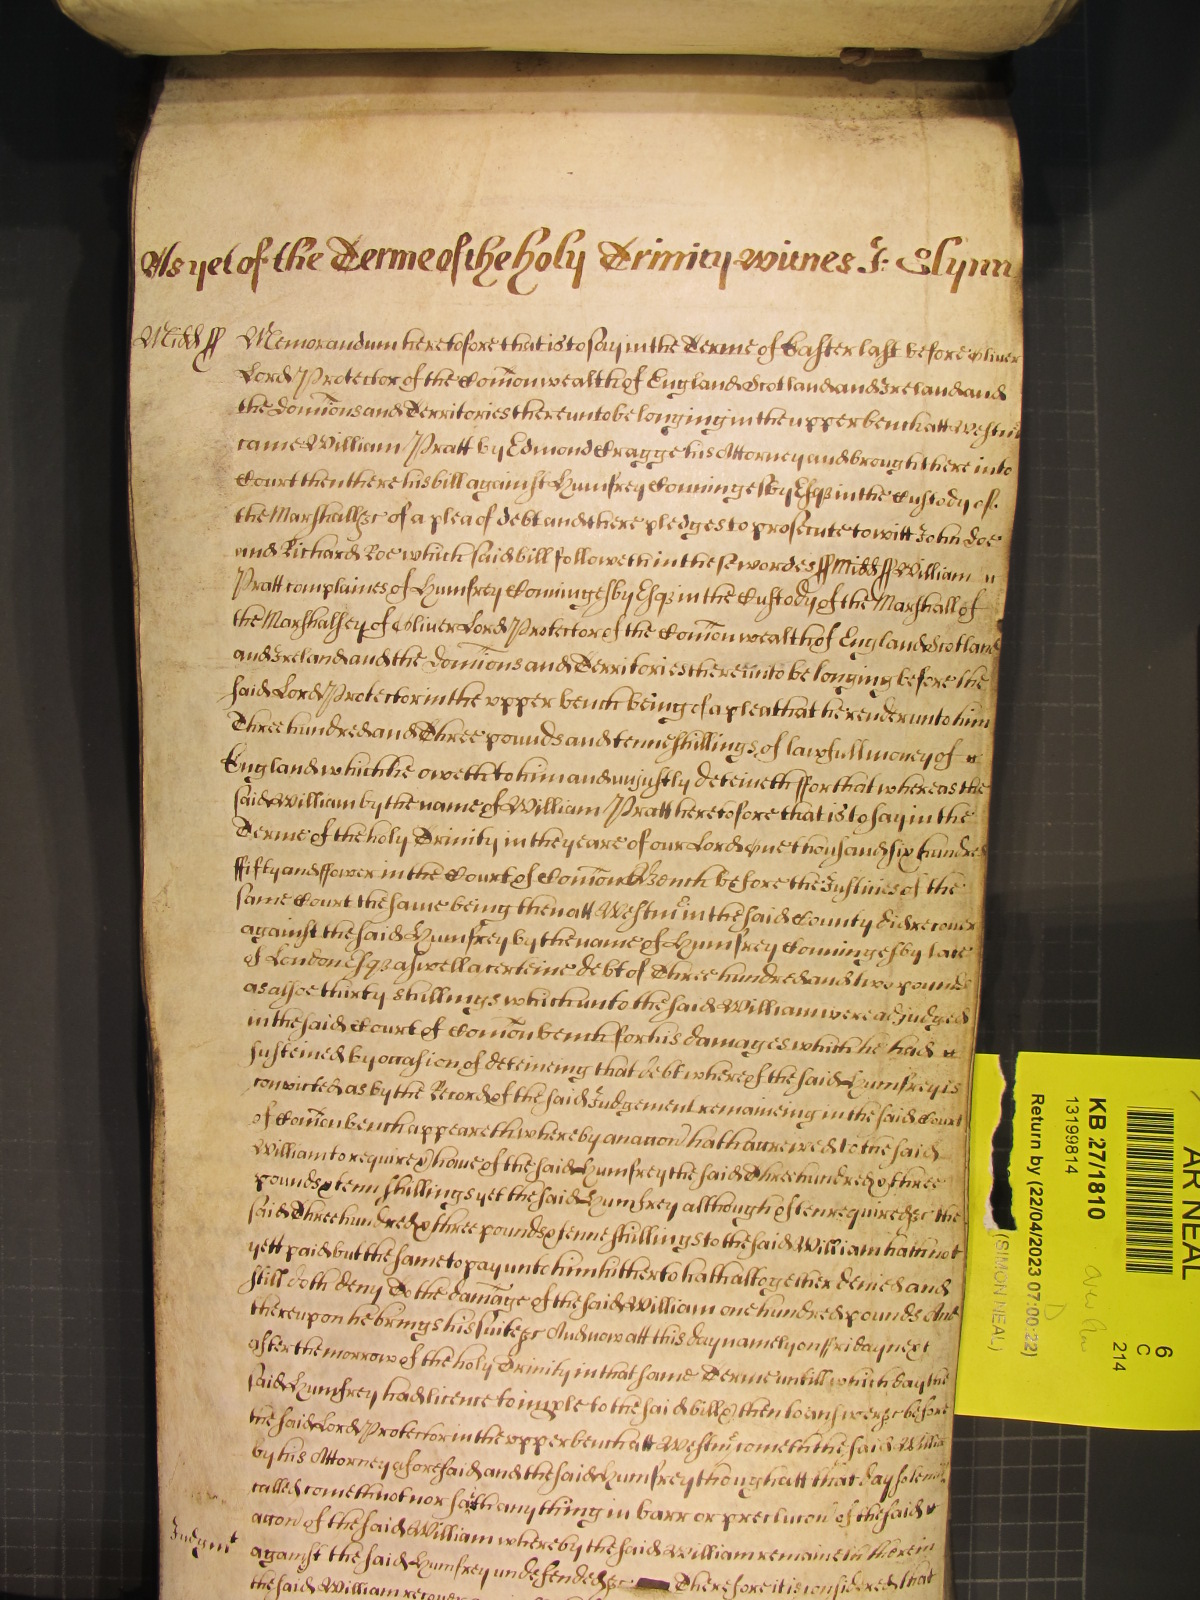 As yet of the Terme of the holy Trinity witnes J: Glynn
Midd ss Memorandum heretofore that is to say in the Terme of Easter last before Oliver
Lord Protector of the Com̄onwealth of England Scotland and Ireland and
the Dominions and Territories thereunto belonging in the upper bench att Westm̄
came William Pratt by Edmond Cragge his Attorney and brought here into
Court then there his bill against Humfrey Conningesby Esq in the Custody of
the Marshall &c of a plea of debt and there pledges to prosecute to witt John Doe
and Richard Roe which said bill followeth in these wordes ss Midd ss William
Pratt complaines of Humfrey Conningesby Esq in the Custody of the Marshall of
the Marshalsey of Oliver Lord Protector of the Com̄onwealth of England Scotland
and Ireland and the Dominions and Territories thereunto belonging before the
said Lord Protector in the upper bench being of a plea that he render unto him
Three hundred and Three pounds and tenne shillings of lawfull money of
England which he oweth to him and unjustly deteineth ffor that whereas the
said William by the name of William Pratt heretofore that is to say in the
Terme of the holy Trinity in the yeare of our Lord One thousand six hundred
ffifty and ffower in the Court of Com̄on Bench before the Justices of the
same Court the same being then att Westm̄ in the said County did recover
against the said Humfrey by the name of Humfrey Conningesby late
of London Esq as well a certeine debt of Three hundred and two pounds
as alsoe thirty shillings which unto the said William were adjudged
in the said Court of Com̄on bench for his damages which he had
susteined by occasion of deteineing that debt whereof the said Humfrey is
convicted as by the Record of the said Judgement remaineing in the said Court
of Com̄on bench appeareth whereby an accon̄ hath accrewed to the said
William to require & have of the said Humfrey the said Three hundred & three
pounds & tenn shillings yet the said Humfrey although often required &c the
said Three hundred & three pounds & tenne shillings to the said William hath not
yett paid but the same to pay unto him hitherto hath altogether denied and
still doth deny To the damage of the said William one hundred pounds And
thereupon he brings his suite &c And now att this day namely on ffriday next
after the morrow of the holy Trinity in that same Terme untill which day the
said Humfrey had licence to imple to the said bill & then to answer &c before
the said Lord Protector in the upper bench att Westm̄ cometh the said Willia
by his Attorney aforesaid and the said Humfrey though att that day solemnly
called cometh not nor saith any thing in barr or preclucon̄ of the said
accon̄ of the said William whereby the said William remaineth therein
Judgmt against the said Humfrey undefended &c Therefore it is considered that
the said William recover
AR NEAL
6
C
214
KB 27/1810
13199814
Return by (22/04/2023 07:00:22)
(SIMON NEAL)